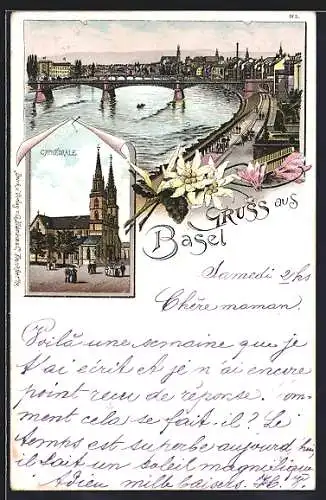 Nº 2.
CATHÉDRALE.
GRUSS aus
Basel
Samedi 2/hs
Chère maman.
Voilà une semaine que je
t'ai écrit et je n'ai encore
point reçu de réponse. Com-
ment cela se fait-il? Le
temps est superbe aujourd'hui,
il fait un soleil magnifique
Adieu mille baisers.